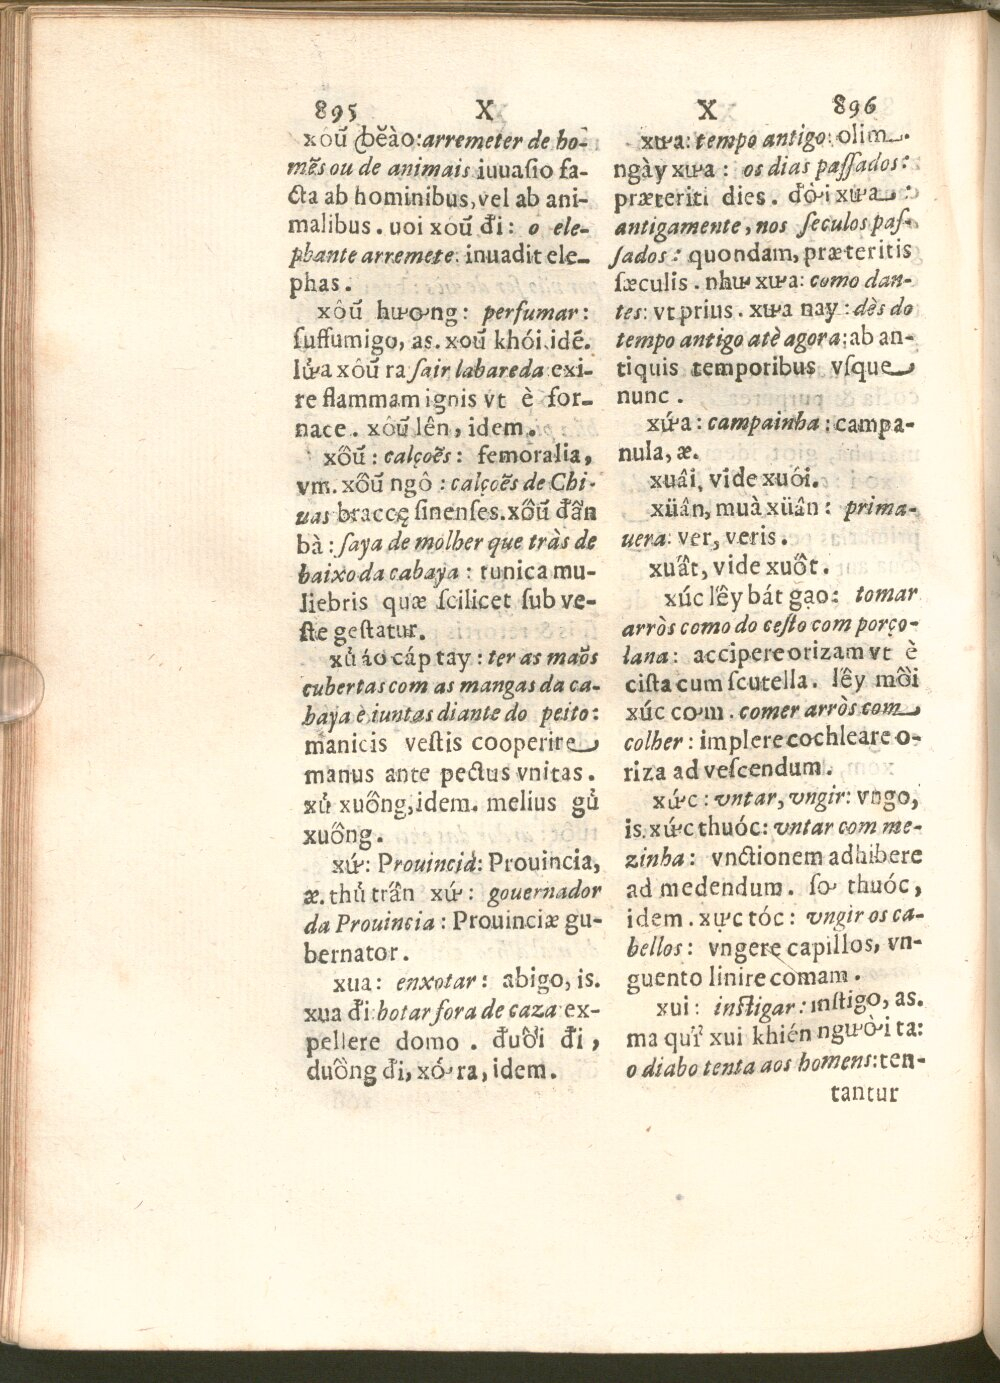 895 X
xôũ ꞗĕào: arremeter de ho-
mẽs ou de animais iuuaſio fa-
cta ab hominibus, vel ab ani-
malibus. uoi xôũ đi: o ele-
phante arremete: inuadit ele-
phas.
xôũ hương: perfumar:
ſuffumigo, as. xoũ khói, idẽ.
lửa xôũ ra ſair labareda exi-
re flammam ignis vt è for-
nace. xôũ lên, idem.
xôũ: calçoẽs: femoralia,
vm. xôũ ngô: calçoẽs de Chi-
uas braccę ſinenſes. xôũ đần
bà: ſaya de molher que tràs de
baixo da cabaya: tunica mu-
liebris quæ ſcilicet ſub ve-
ſte geſtatur.
xủ áo cáp tay: ter as maõs
cubertas com as mangas da ca-
baya e iuntas diante do peito:
manicis veſtis cooperire
manus ante pectus vnitas.
xủ xuống, idem. melius gủ
xuống.
xứ: Prouincia: Prouincia,
æ. thủ trấn xứ: gouernador
da Prouincia: Prouinciæ gu-
bernator.
xua: enxotar: abigo, is.
xua đi: botar fora de caza ex-
pellere domo. đuổi đi,
duồng đi, xớ ra, idem.
X 896
xưa: tempo antigo: olim.
ngày xưa: os dias paſſados:
præteriti dies. đờ̀i xưa:
antigamente, nos ſeculos paſ-
ſados: quondam, præteritis
ſæculis. như xưa: como dan-
tes: vt prius. xưa nay: dès do
tempo antigo atè agora: ab an-
tiquis temporibus vſque
nunc.
xứa: campainha: campa-
nula, æ.
xuâi, vide xuôi.
xüân, muà xüân: prima-
uera: ver, veris.
xuất, vide xuốt.
xúc lếy bát gạo: tomar
arròs como do ceſto com porço-
lana: accipere orizam vt è
ciſta cum ſcutella. lếy mồi
xúc cơm. comer arròs com
colher: implere cochleare o-
riza ad veſcendum.
xức: vntar, vngir: vngo,
is. xức thuóc: vntar com me-
zinha: vnctionem adhibere
ad medendum. ſơ thuóc,
idem. xực tóc: vngir os ca-
bellos: vngere capillos, vn-
guento linire comam.
xui: inſtigar: inſtigo, as.
ma quỉ xui khién người ta:
o diabo tenta aos homens: ten-
tantur